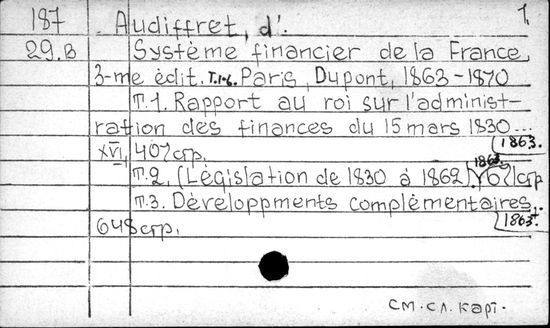 187 Audiffret, d'. 1
29.В Système financier de la France,
3-me édit. т.1-6. Paris, Dupont, 1863-1870
Т.1. Rapport au roi sur l'administ-
ration des finances du 15 mars 1830...
XVI, 407 стр. 1863.
Т.2. (Législation de 1830 à 1862). 1863. 671 стр
Т.3. Développments complémentaires..
648 стр. 1863.
см. сл. карт.